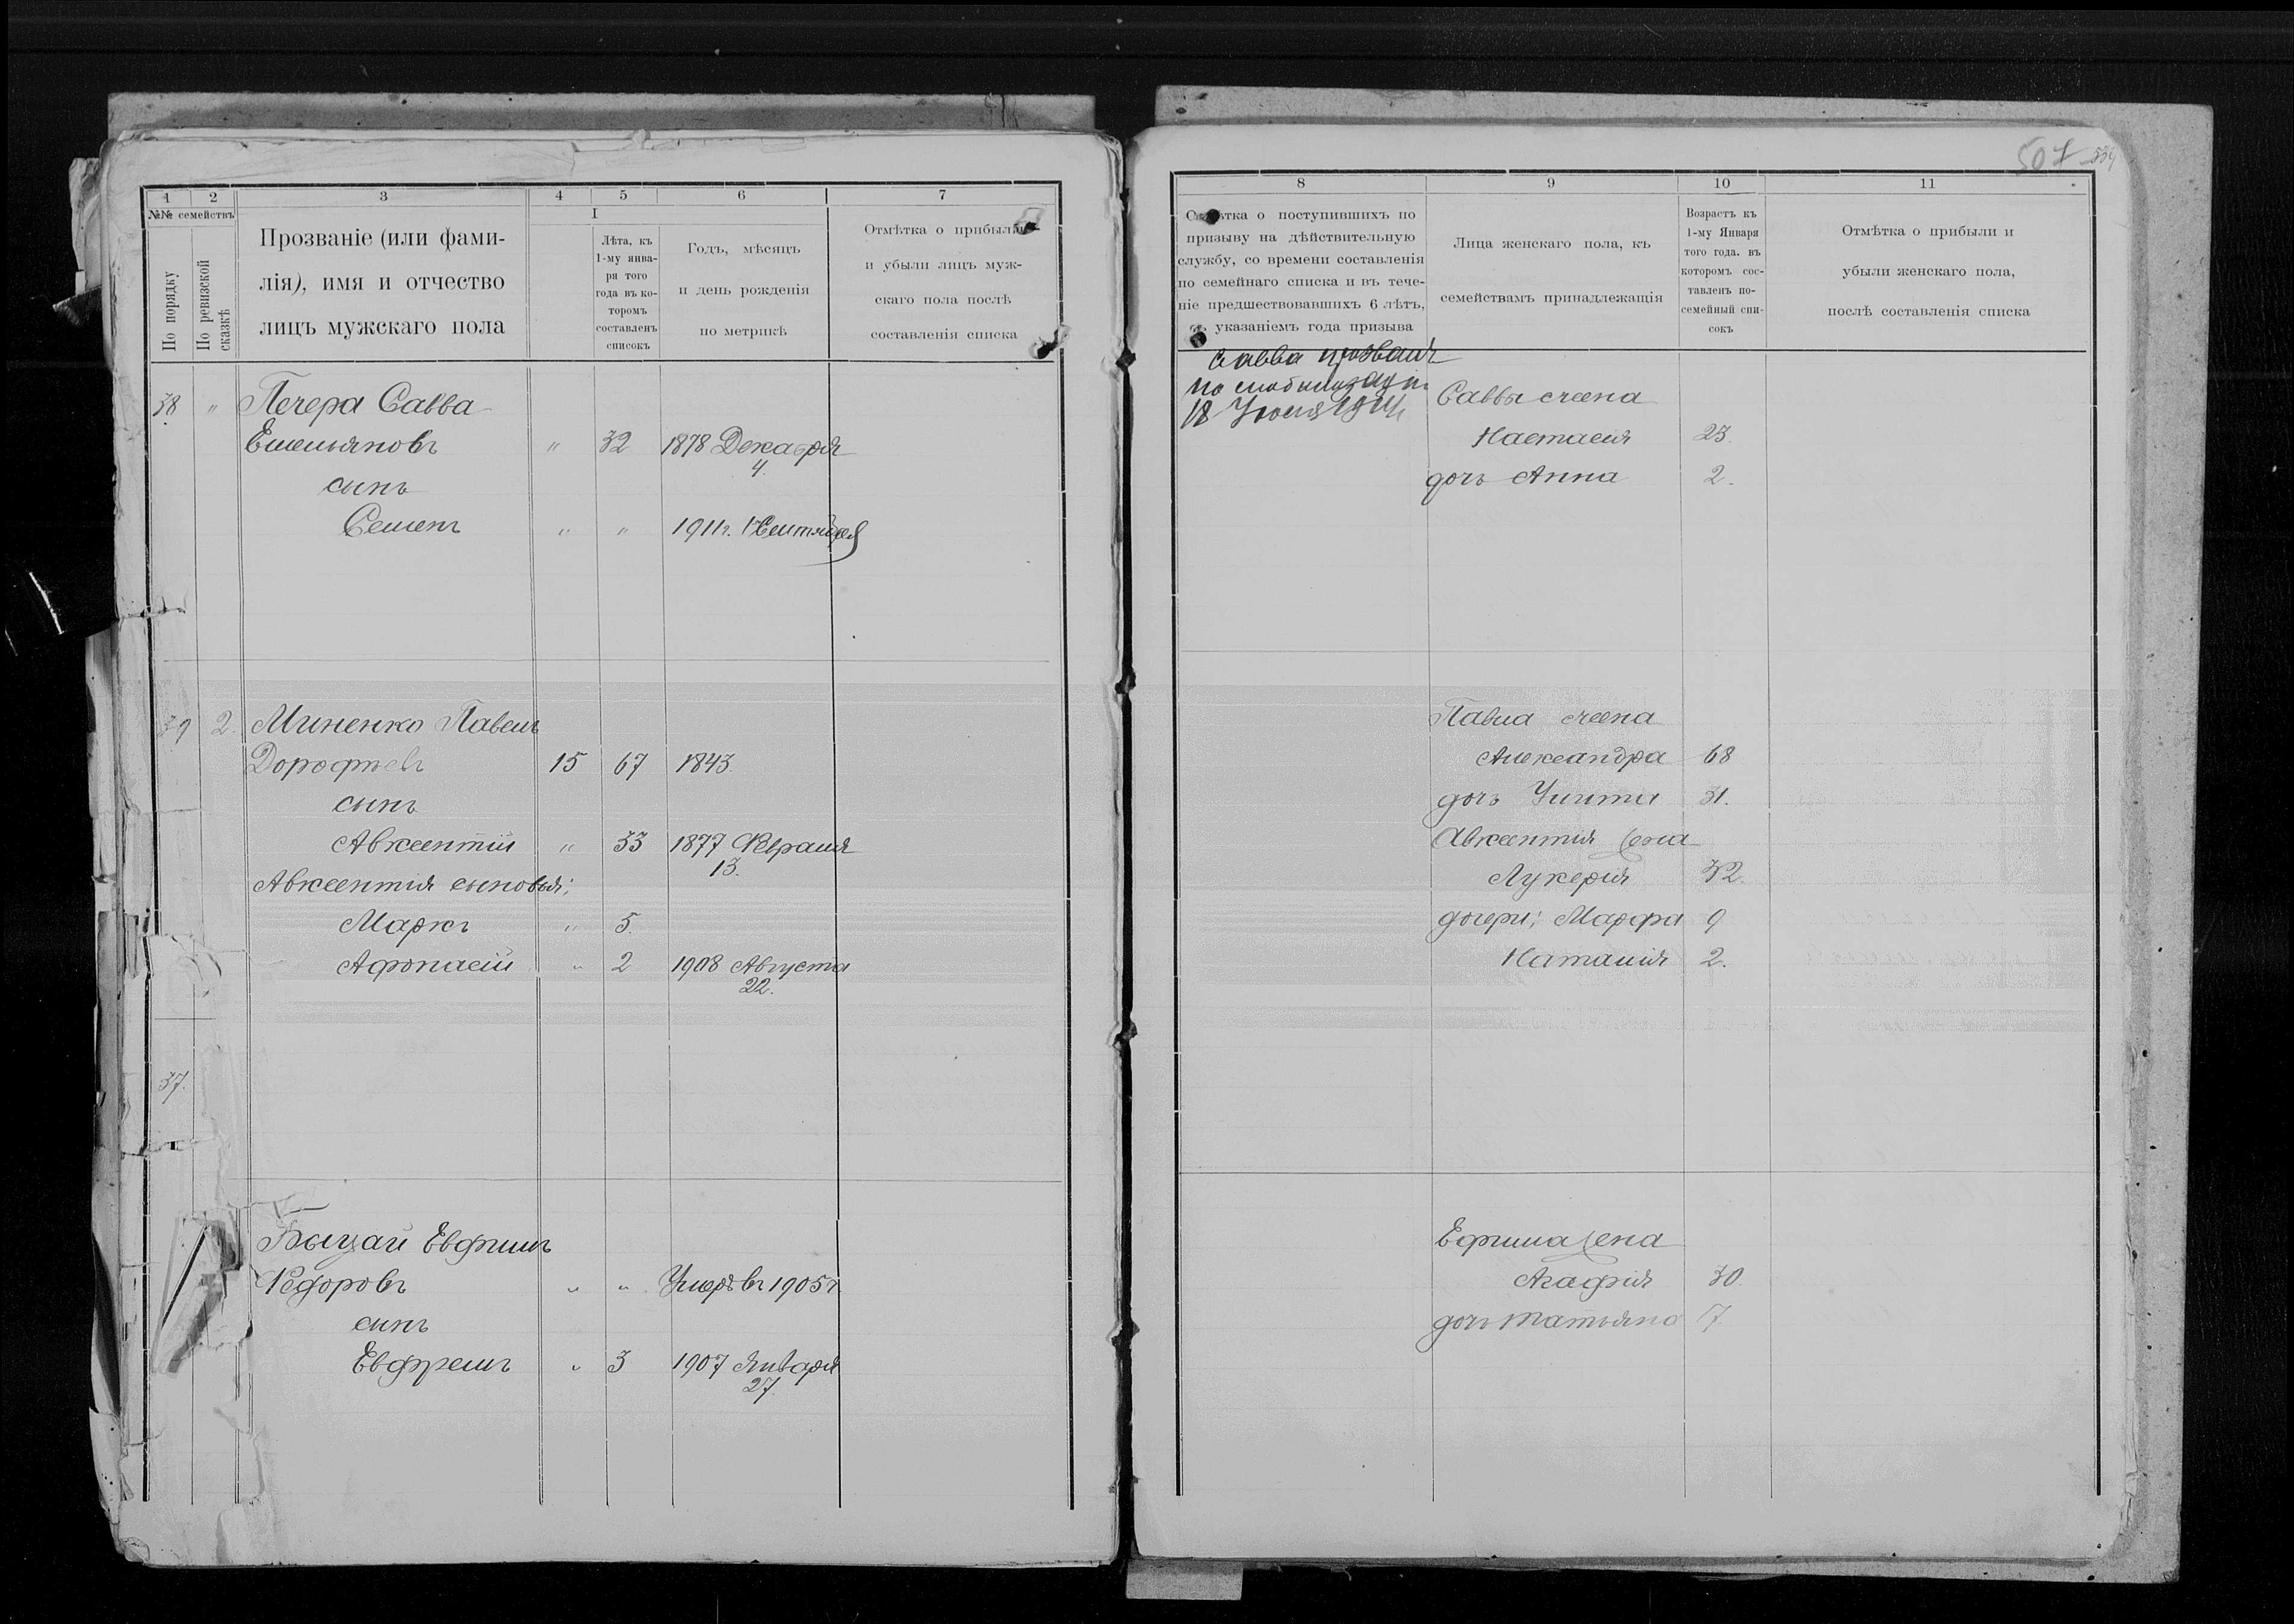 1 2 3 4 5 6 7
№№ семействъ
По порядку
По ревизской сказкѣ
Прозваніе (или фами-
лія), имя и отчество
лицъ мужскаго пола
I
Лѣта, къ
1-му янва-
ря того
года въ ко-
торомъ
составленъ
списокъ
Годъ, мѣсяцъ
и день рожденія
по метрикѣ
Отмѣтка о прибыли
и убыли лицъ муж-
скаго пола послѣ
составленія списка
38 " Печера Савва
Емельяновъ " 32 1878 Декабря
4.
сынъ
Семенъ " " 1911г. 1 Сентября
39 2. Миненко Павелъ
Дорофѣевъ 15 67 1843.
сынъ
Авксентій " 33 1877 Февраля
13.
Авксентія сыновья:
Маркъ " 5.
Афонасій " 2 1908 Августа
22.
37.
Евфимъ
Федоровъ " " Умеръ въ 1905г.
сынъ
Евфремъ " 3 1907 Января
27.
507
8 9 10 11
Отмѣтка о поступившихъ по
призыву на дѣйствительную
службу, со времени составленія
по семейнаго списка и въ тече-
ніе предшествовавшихъ 6 лѣтъ,
указаніемъ года призыва
Лица женскаго пола, къ
семействамъ принадлежащія
Возрастъ къ
1-му Января
того года. въ
которомъ сос-
тавленъ по-
семейный спи-
сокъ
Отмѣтка о прибыли и
убыли женскаго пола,
послѣ составленія списка
Савва призванъ
по мобилизаціи
18 Іюля 1914
Саввы жена
Настасія 23.
дочь Анна 2.
Павла жена
Александра 68
дочь Улита 31.
Авксентія жена
Лукерія 32.
дочери: Марфа 9
Наталія 2.
Ефима жена
Агафія 30.
дочь Татьяна 7.